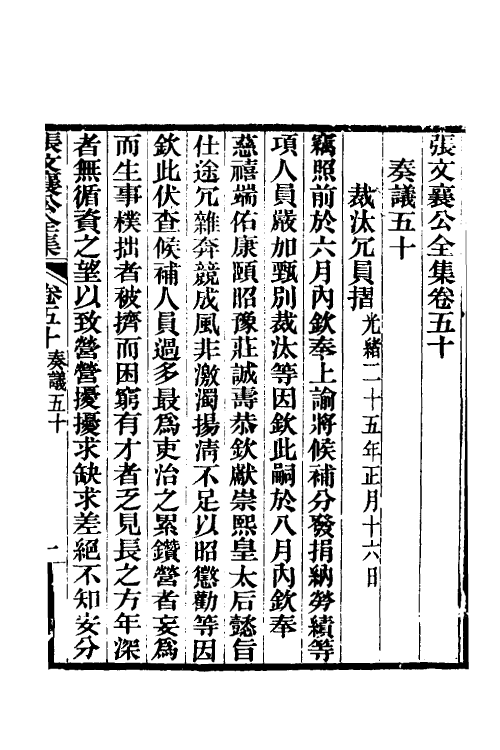 張文襄公全集卷五十
奏議五十
裁汰冗員摺光緒二十五年正月十六日
竊照前於六月內欽奉上諭將候補分發捐納勞績等
項人員嚴加甄別裁汰等因欽此嗣於八月內欽奉
慈禧端佑康頤昭豫莊誠壽恭欽獻崇熙皇太后懿旨
仕途冗雜奔競成風非激濁揚淸不足以昭懲勸等因
欽此伏查候補人員過多最爲吏治之累鑽營者妄爲
而生事樸拙者被擠而困窮有才者乏見長之方年深
者無循資之望以致營營擾擾求缺求差絕不知安分
張文襄公全集 卷五十 奏議五十 一